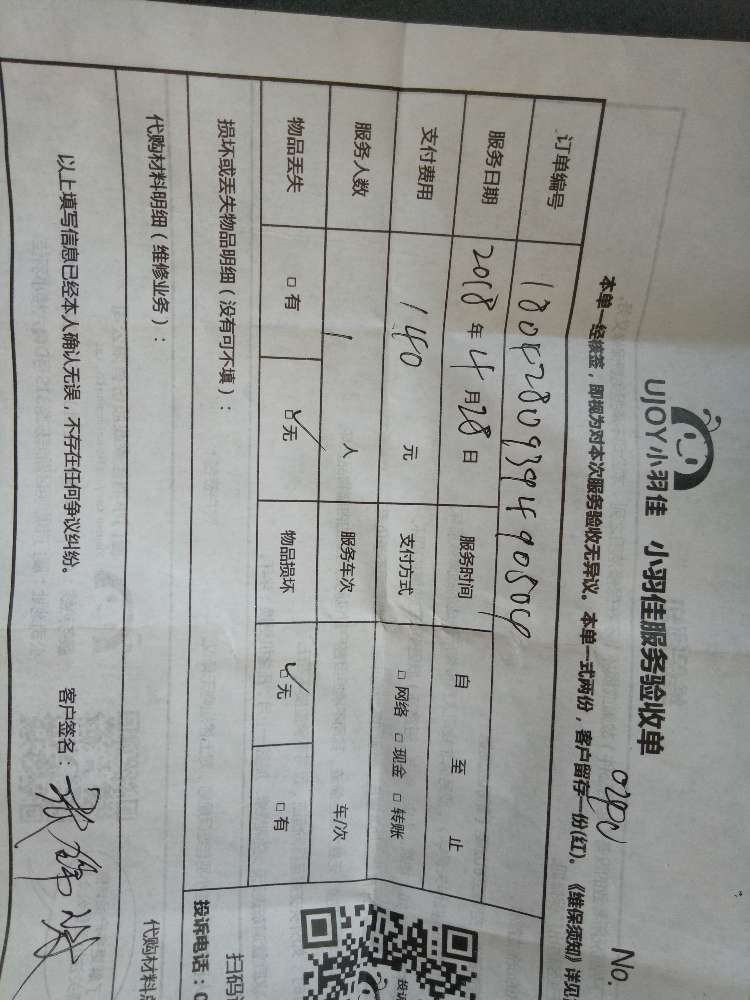 UJOY小羽佳 小羽佳服务验收单
No.
本单一经签签，即视为对本次服务验收无异议。本单一式两份，客户留存一份(红)。《维保须知》详见
订单编号
服务日期 2018 年 4 月 28 日 服务时间 自 至 止
支付费用 140 元 支付方式 □ 网络 □ 现金 □ 转账
服务人数 1 人 服务车次 车/次
物品丢失 □ 有 ☑ 无 物品损坏 ☑ 无 □ 有
损坏或丢失物品明细（没有可不填）：
代购材料明细（维修业务）：
代购材料
以上填写信息已经本人确认无误，不存在任何争议纠纷。 客户签名：
扫码
投诉电话：0
投诉